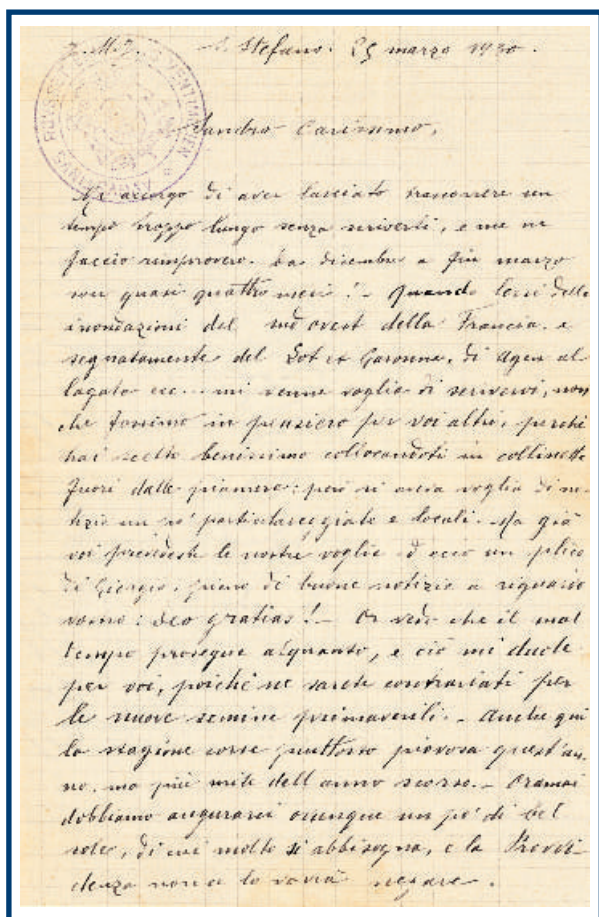 J. M. J. S. Stefano: 25 marzo 1930.
VENTIMILIEN
Sandro Carissimo,
Mi accorgo di aver lasciato trascorrere un
tempo troppo lungo senza scriverti, e me ne
faccio rimprovero. Da dicembre a fin marzo
son quasi quattro mesi! - Quando lessi delle
inondazioni del sud ovest della Francia. e
segnatamente del Lot et Garonne, di Agen al
lagato ecc... mi venne voglia di scrivervi, non
che fossimo in pensiero per voi altri, perché
hai scelto benissimo collocandoti in collinette
fuori dalle pianure: però si aveva voglia di no-
tizie un po' particolareggiate e locali. Ma già
voi precedeste le nostre voglie ed ecco un plico
di Giorgio, pieno di buone notizie a riguardo
vostro: deo gratias! - Or vedo che il mal
tempo prosegue alquanto, e ciò mi duole
per voi, poichè ne sarete contrariati per
le nuove semine primaverili. - Anche qui
la stagione corse piuttosto piovosa quest'an-
no, ma più mite dell'anno scorso. - Oramai
dobbiamo augurarci ovunque un po' di bel
sole, di cui molto si abbisogna, e la Provvi-
denza non ce lo vorrà negare.